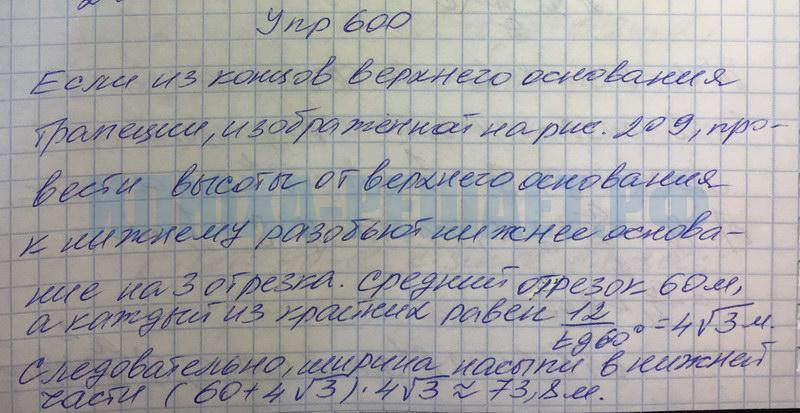 Упр 600
Если из концов верхнего основания
трапеции, изображенной на рис. 209, про-
вести высоты от верхнего основания
к нижнему разобьют нижнее основа-
ние на 3 отрезка. средний отрезок 60 м,
а каждый из крайних равен 12/tg60° = 4√3 м.
Следовательно, ширина насыпи в нижней
части (60+4√3)·4√3 ≈ 73,8 м.